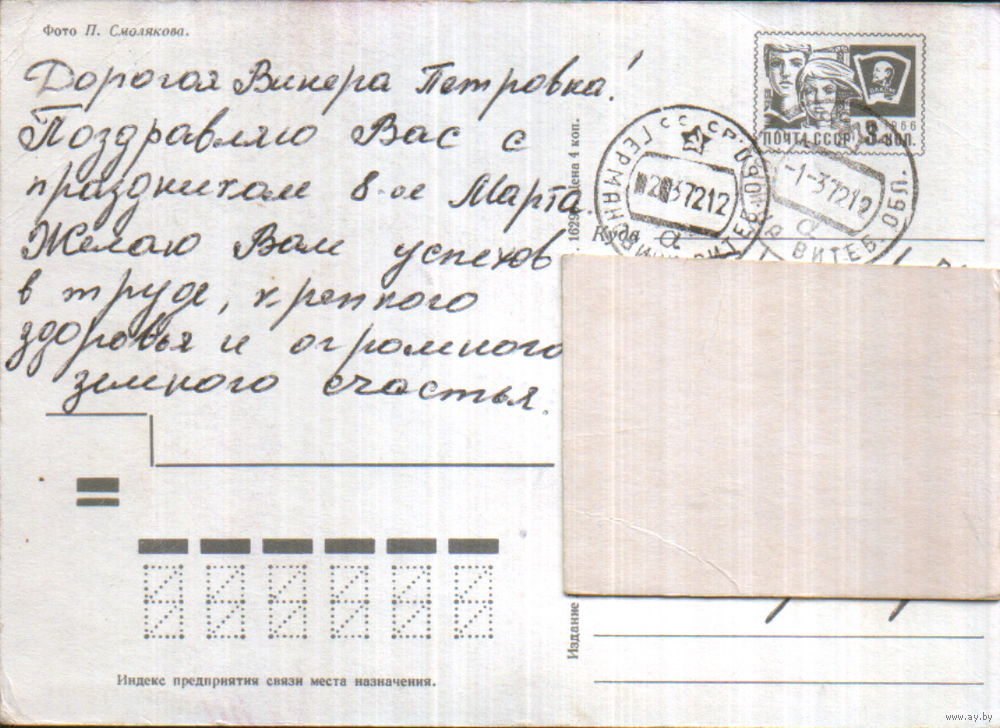 Фото П. Смолякова.
Дорогая Винера Петровна!
Поздравляю Вас с
праздником 8-ое Марта.
Желаю Вам успехов
в труде, крепкого
здоровья и огромного
земного счастья.
Индекс предприятия связи места назначения.
Цена 4 коп.
Издание
ВЛКСМ
1966
ПОЧТА СССР 3 КОП.
СССР
2 3 72 12
-1-3 72 12
ВИТЕБ. ОБЛ.
а
а
Куда
www.ay.by